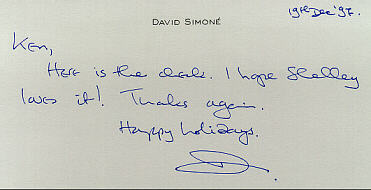 19th Dec '97.
DAVID SIMONÉ
Ken,
Here is the desk. I hope Shelley
loves it! Thanks again.
Happy holidays.